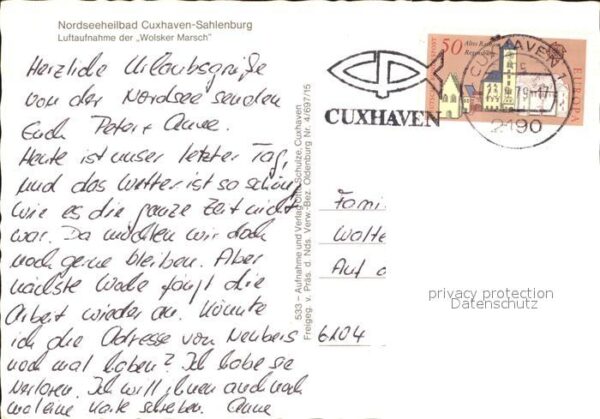 Nordseeheilbad Cuxhaven-Sahlenburg
Luftaufnahme der „Wolsker Marsch"
Herzliche Urlaubsgrüße
von der Nordsee senden
Euch Peter + Anne.
Heute ist unser letzter Tag,
und das Wetter ist so schön
wie es die ganze Zeit nicht
war. Da möchten wir doch
noch gerne bleiben. Aber
nächste Woche fängt die
Arbeit wieder an. Könnte
ich die Adresse von Neubers
noch mal haben? Ich habe sie
verloren. Ich will ihnen auch noch
mal eine Karte schreiben. Anne
533 – Aufnahme und Verlag Otto Schulze, Cuxhaven
Freigeg. v. Präs. d. Nds. Verw.-Bez. Oldenburg Nr. 4/697/15
CUXHAVEN
50
Altes Rathaus
EUROPA
CUXHAVEN 1
2190
Fami
Walte
Auf d
6104
privacy protection
Datenschutz